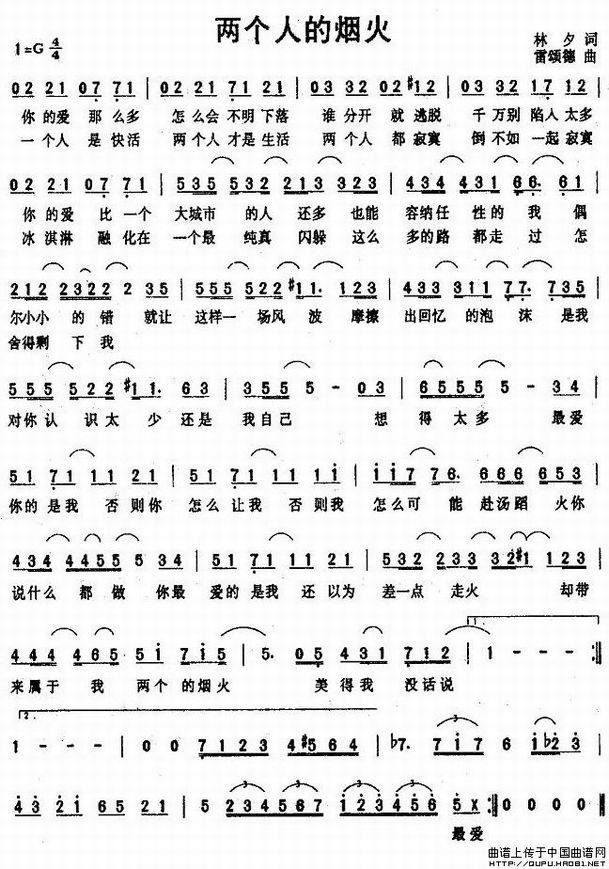 两个人的烟火
1=G 4/4
林夕 词
雷颂德 曲
02 21 07 71 | 02 21 07 71 | 03 32 03 32 | 03 32 02 #12 |
你的爱 那么多 怎么会 不明下落 谁分开 就逃脱 千万别 陷入太多
一个人 是快活 两个人 才是生活 两个人 都寂寞 倒不如 一起寂寞
02 21 07 71 | 535 532 213 323 | 434 431 66. 61 |
你的爱 比一个 大城市 的人 还多 也能 容纳任 性的 我 偶
冰淇淋 融化在 一个最 纯真 闪躲 这么 多的路 都走 过 怎
212 2322 2 35 | 555 522 #11. 123 | 433 311 77. 735 |
尔小小 的 错 就让 这样一 场风 波 摩擦 出回忆 的泡 沫 是我
舍得剩 下 我
555 522 #11. 63 | 355 5 - 03 | 6555 5 - 34 |
对你认 识太 少 还是 我自己 想 得太多 最爱
51 71 11 21 | 51 71 11 1i | ii7 76. 666 653 |
你的 是我 否则你 怎么 让我 否则我 怎么可 能 赴汤蹈 火你
434 4455 5 35 | 51 71 11 21 | 532 233 32#1 123 |
说什么 都 做 你最 爱的 是我 还以为 差一点 走火 却带
444 465 5i 7i5 | 5. 05 431 712 | 1 - - :‖
来属于 我 两个 的烟火 美得我 没话说
1 - - - | 0 0 7123 4#564 | b7. 7i7 6 ib23 |
43 2i 65 21 | 5 234567 i23456 5X :‖ 0 0 0 0 ‖
最爱
曲谱上传于中国曲谱网
HTTP://QUPU.HAO81.NET